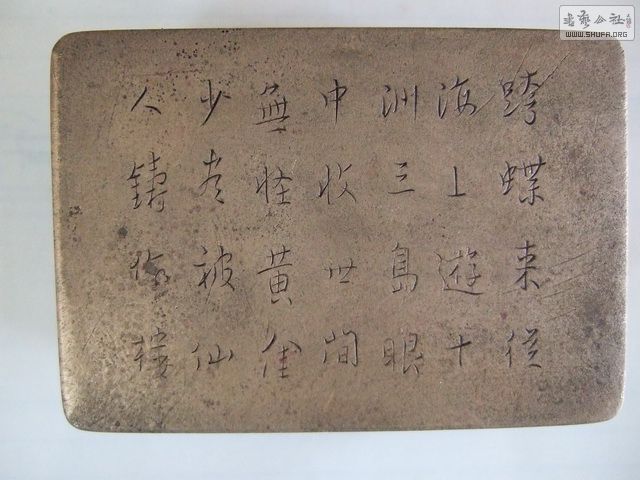 跨蝶来從
海上遊十
洲三島眼
中收世間
無怪黃金
少尽被仙
人鑄作樓
書藝公社
WWW.SHUFA.ORG